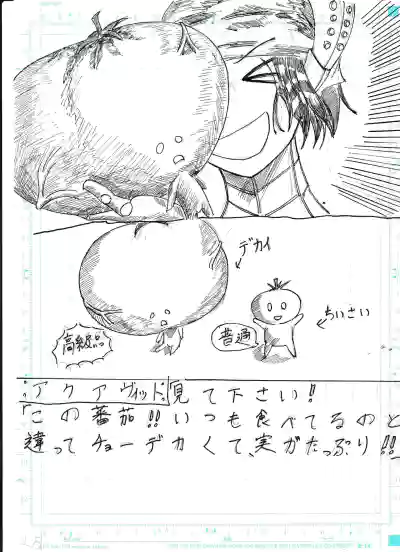 デカイ
高級品
普通
ちいさい
アクアヴィッド 見て下さい!
「この蕃茄!!いつも食べてるのと
違ってチョーデカくて、実がたっぷり!!